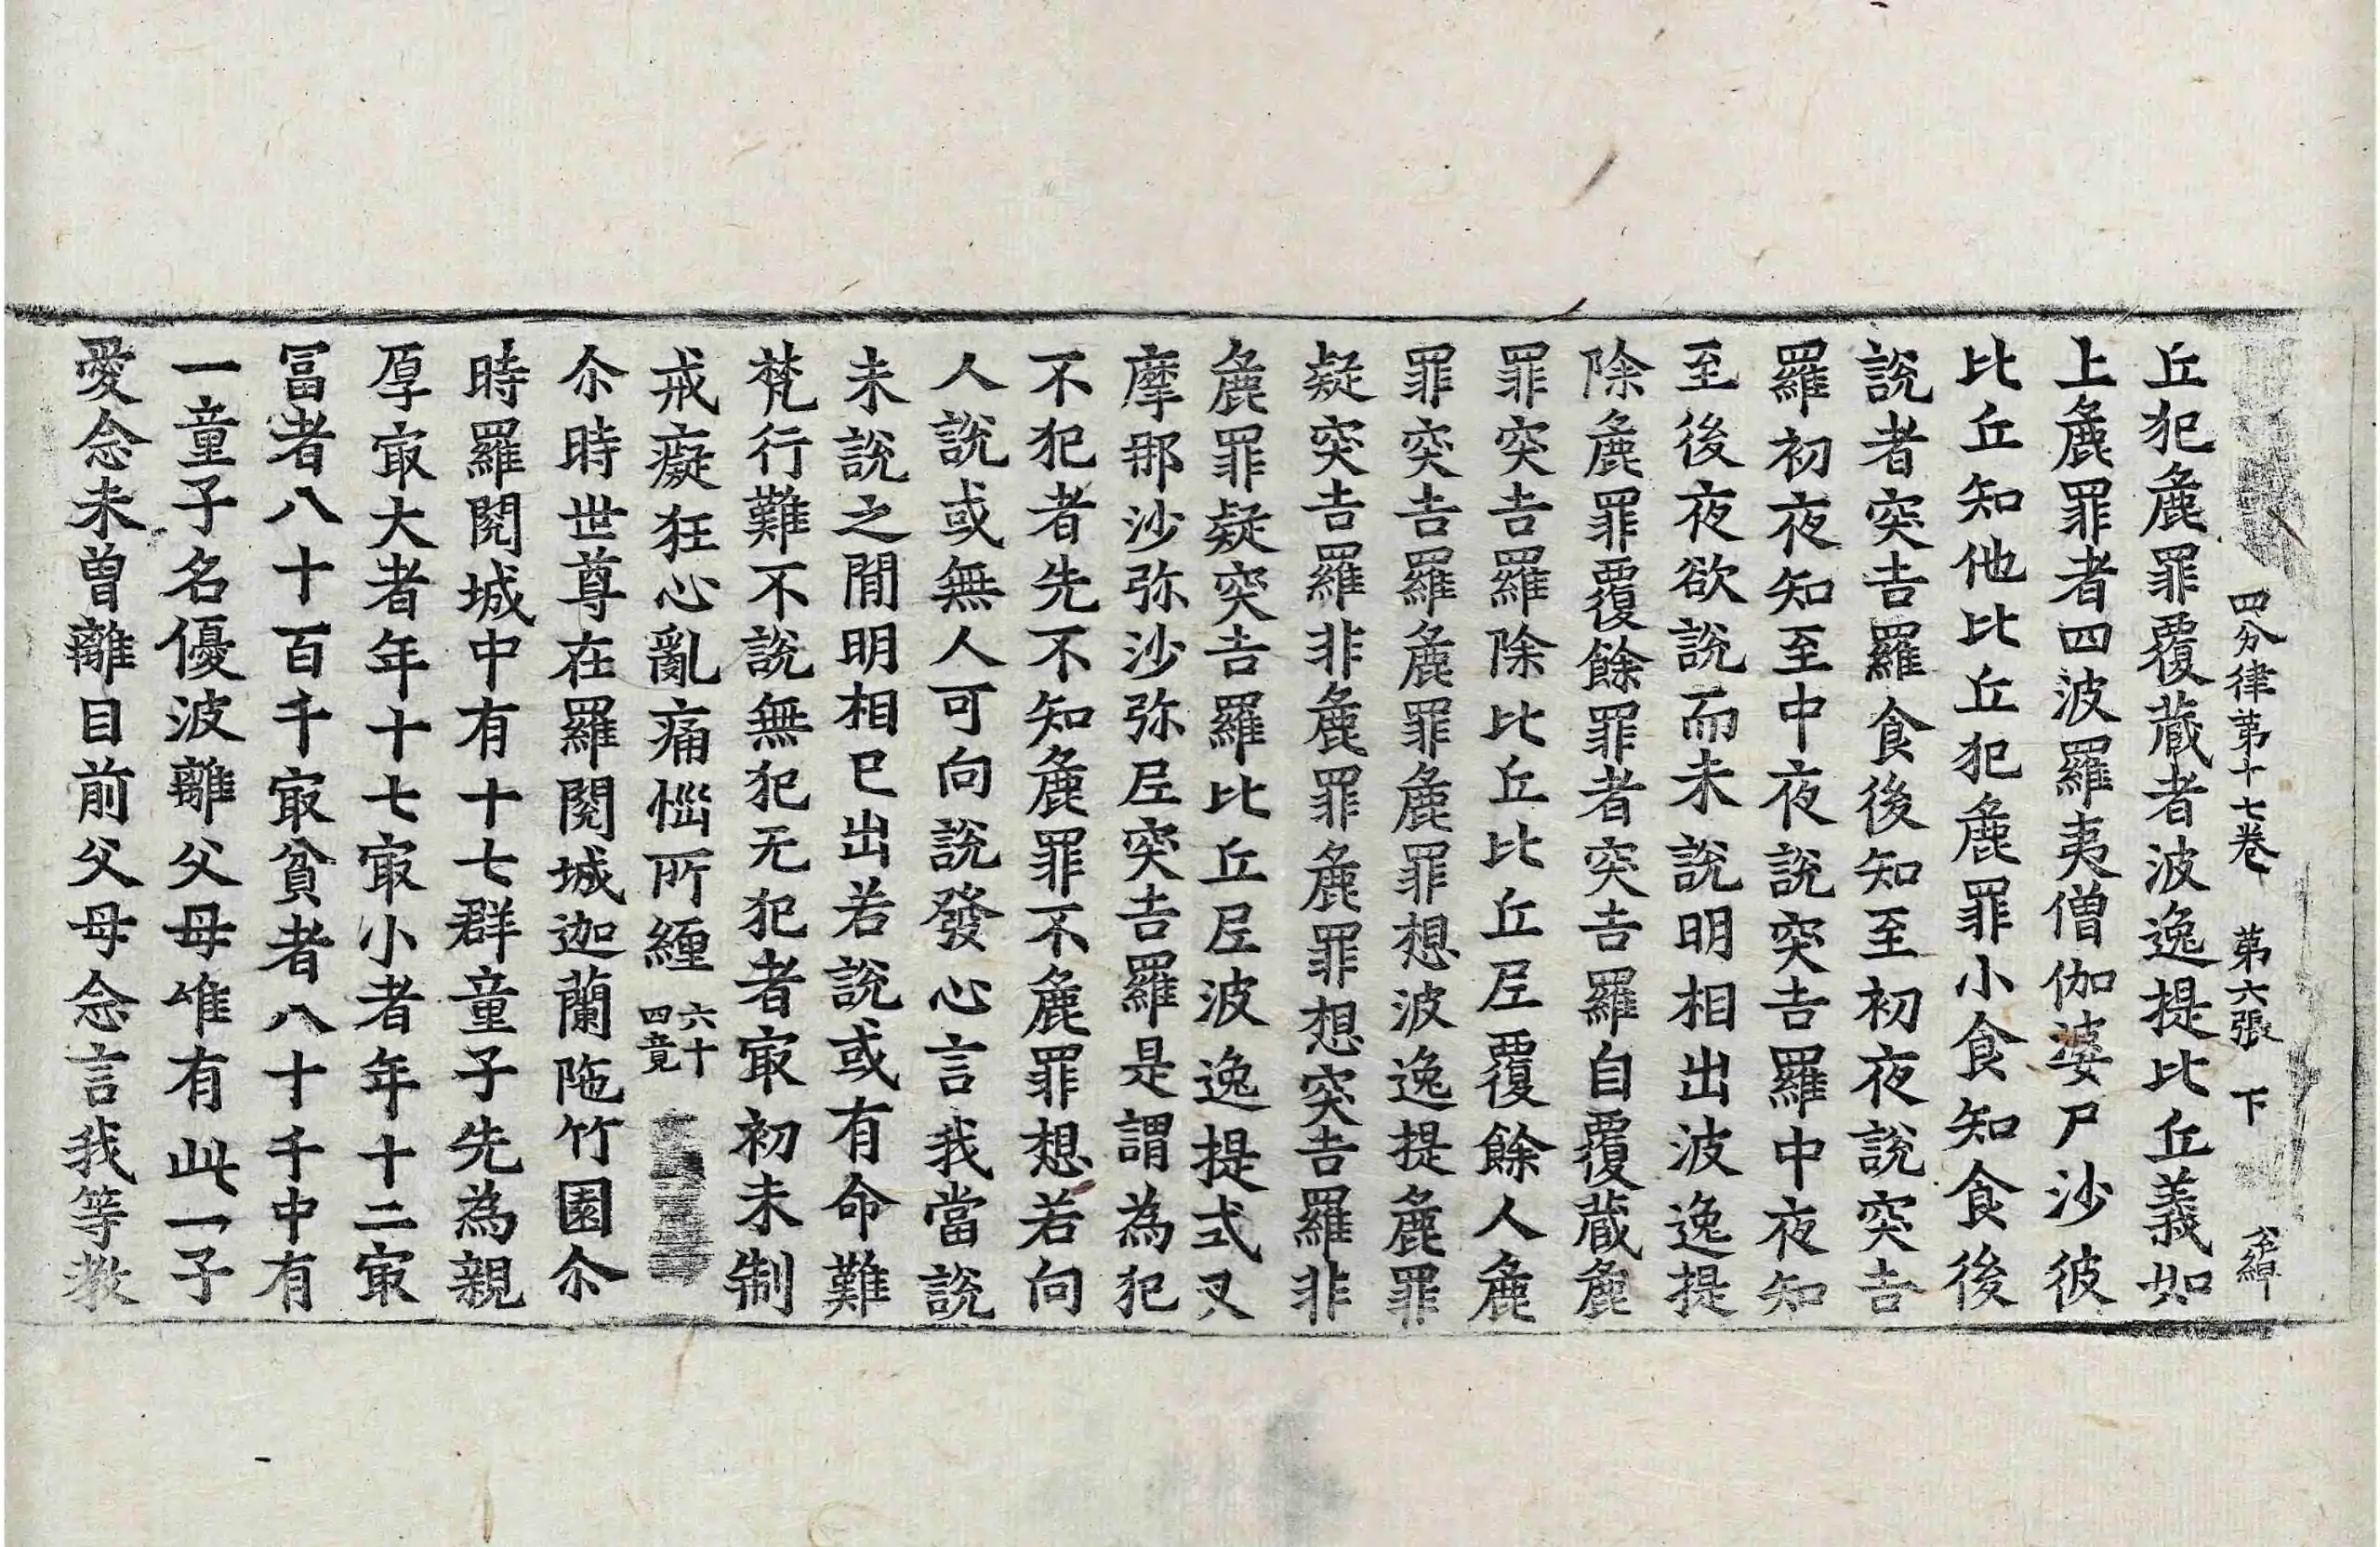 四分律第十七卷 第六張 下
丘犯麁罪覆藏者波逸提比丘義如
上麁罪者四波羅夷僧伽婆尸沙彼
比丘知他比丘犯麁罪小食知食後
說者突吉羅食後知至初夜說突吉
羅初夜知至中夜說突吉羅中夜知
至後夜欲說而未說明相出波逸提
除麁罪覆餘罪者突吉羅自覆藏麁
罪突吉羅除比丘比丘尼覆餘人麁
罪突吉羅麁罪麁罪想波逸提麁罪
疑突吉羅非麁罪麁罪想突吉羅非
麁罪疑突吉羅比丘尼波逸提式叉
摩那沙弥沙弥尼突吉羅是謂為犯
不犯者先不知麁罪不麁罪想若向
人說或無人可向說發心言我當說
未說之間明相已出若說或有命難
梵行難不說無犯无犯者㝡初未制
戒癡狂心亂痛惱所纏六十四竟
尒時世尊在羅閱城迦蘭陁竹園尒
時羅閱城中有十七群童子先為親
厚㝡大者年十七㝡小者年十二㝡
冨者八十百千㝡貧者八十千中有
一童子名優波離父母唯有此一子
愛念未曾離目前父母念言我等教